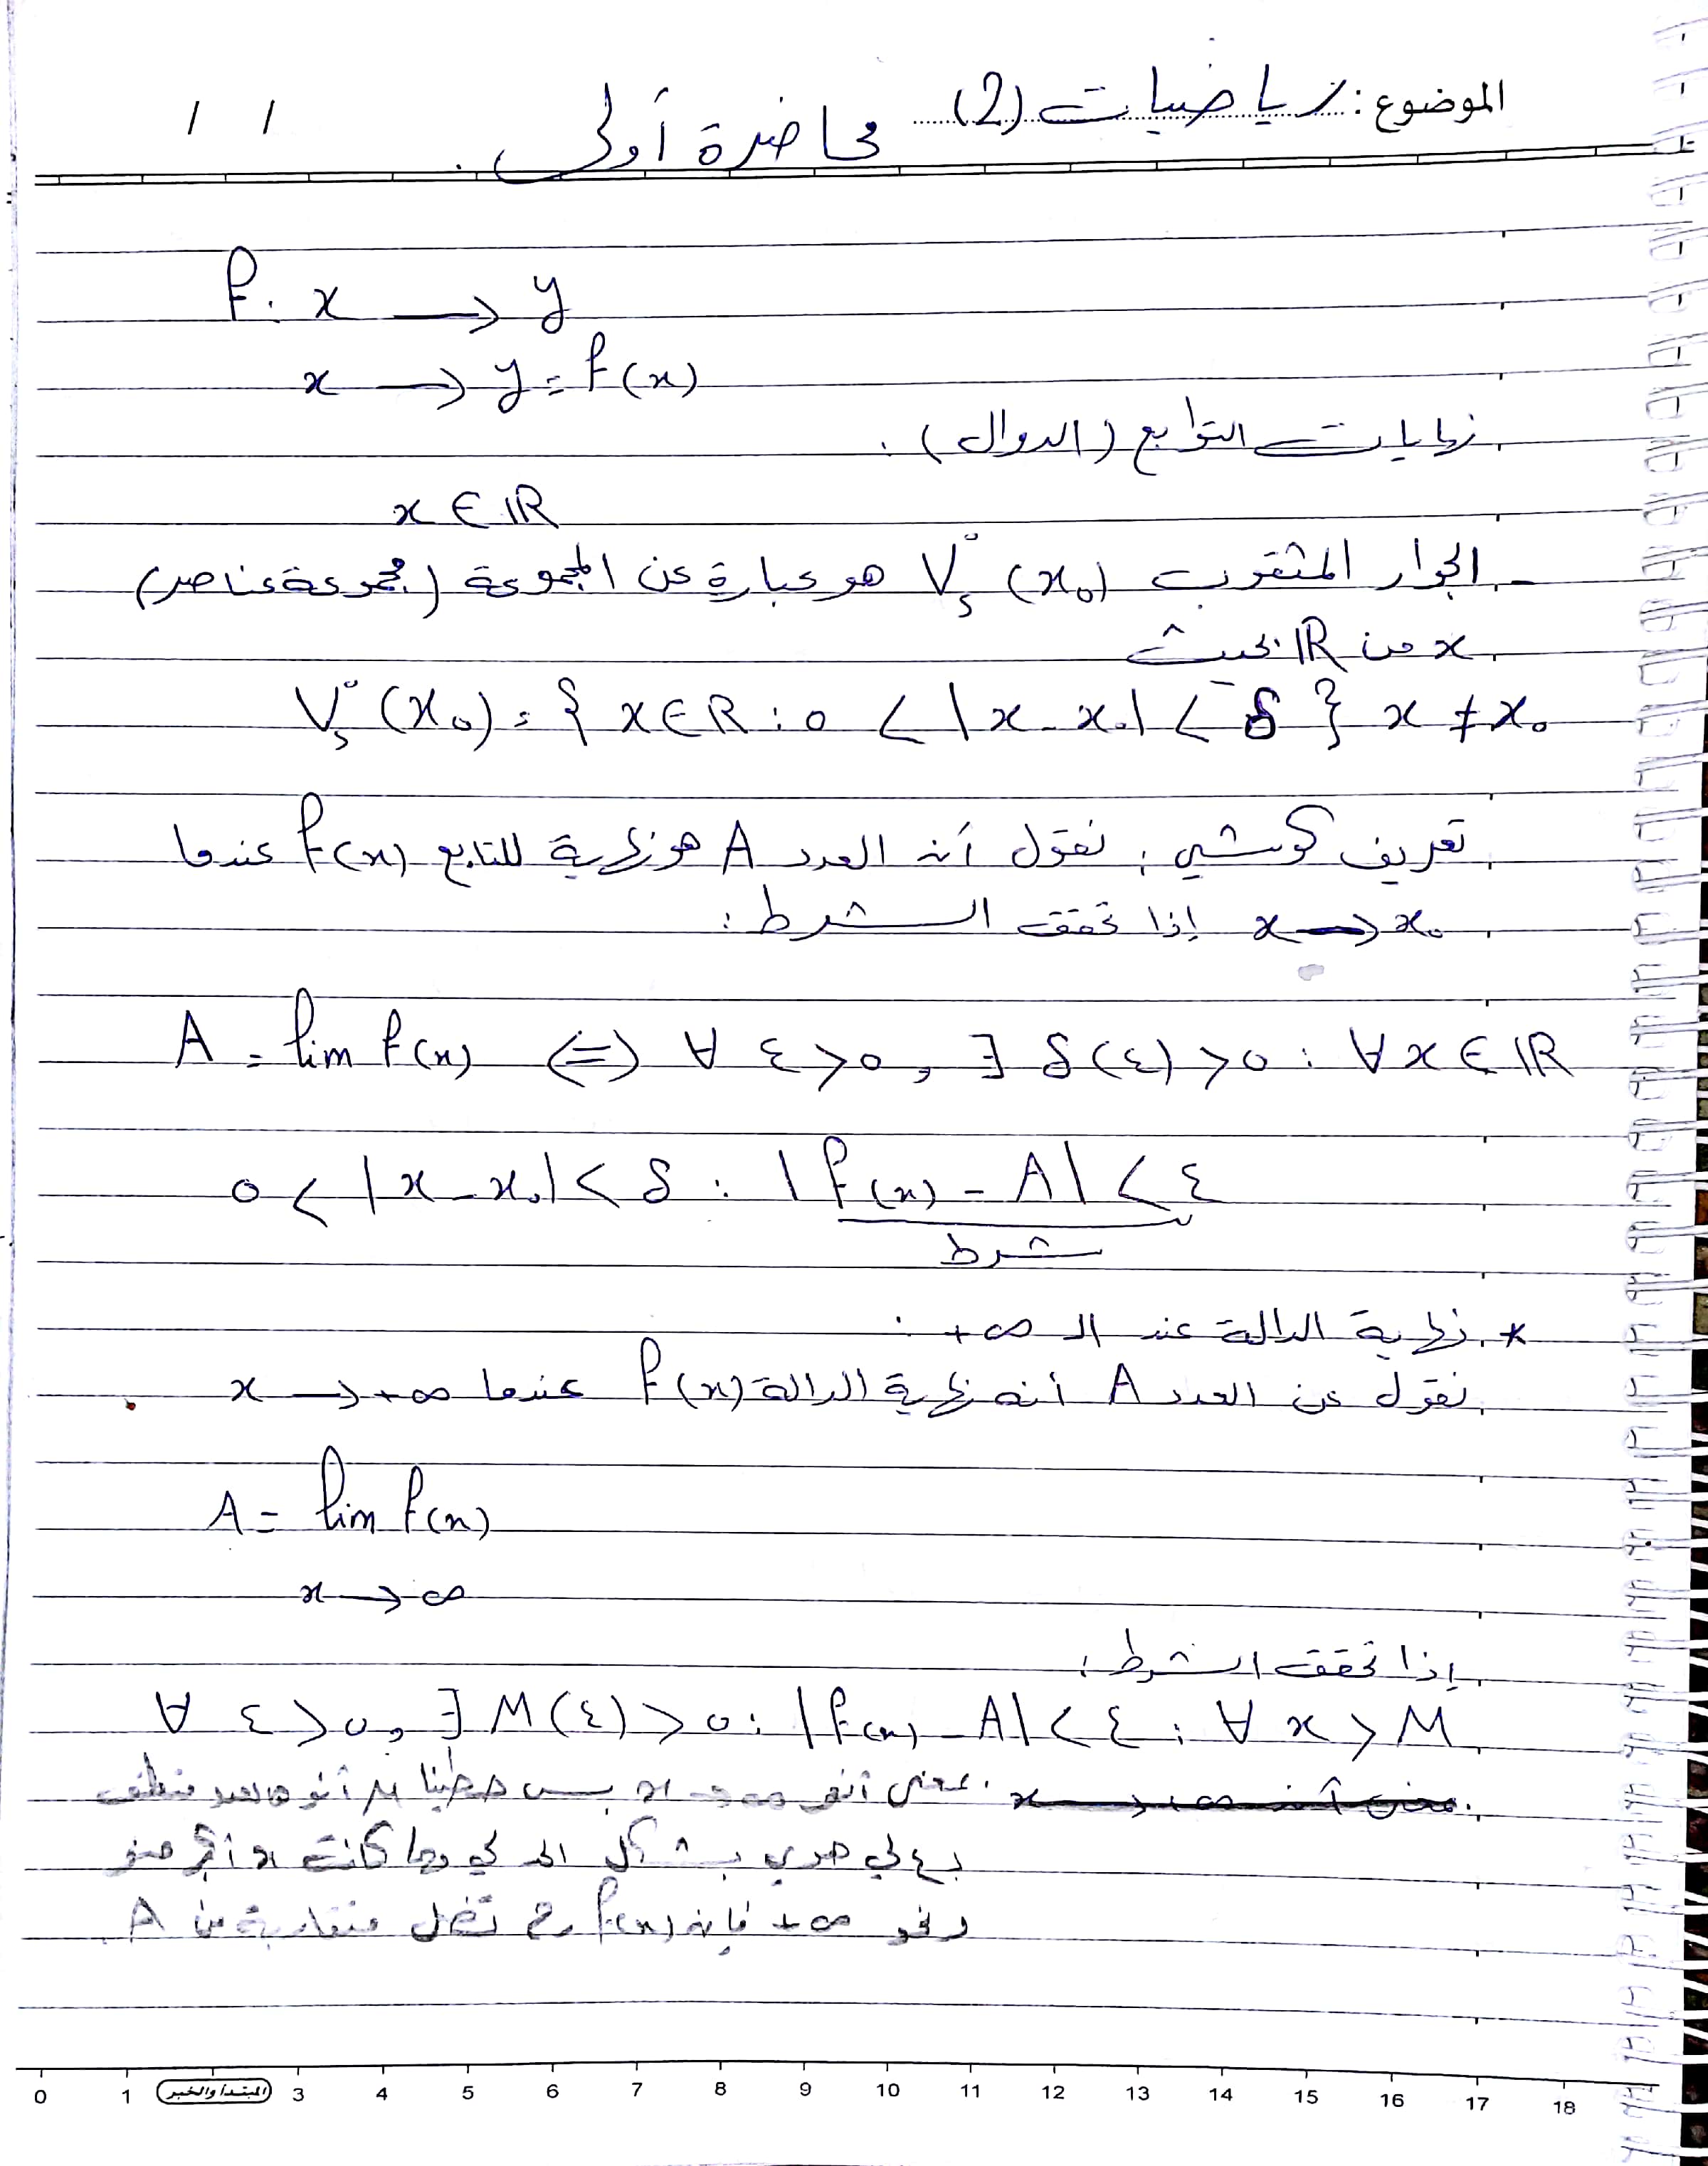 الموضوع: رياضيات (2)
محاضرة أولى.
/ /
f: x → y
x → y = f(x)
نهايات التوابع (الدوال):
x ∈ ℝ
- الجوار المثقوب V°δ (x₀) هو عبارة عن المجموعة (مجموعة عناصر)
x من ℝ بحيث
V°δ (x₀) = { x ∈ R : 0 < |x - x₀| < δ } x ≠ x₀
تعريف كوشي: نقول أن العدد A هو نهاية للتابع f(x) عندما
x → x₀ إذا تحقق الشرط:
A = lim f(x) ⇔ ∀ ε > 0, ∃ δ(ε) > 0 : ∀ x ∈ ℝ
0 < |x - x₀| < δ : |f(x) - A| < ε
شرط
* نهاية الدالة عند الـ +∞:
نقول عن العدد A أنه نهاية الدالة f(x) عندما x → +∞
A = lim f(x)
x → ∞
إذا تحقق الشرط:
∀ ε > 0, ∃ M(ε) > 0 : |f(x) - A| < ε : ∀ x > M
بمعنى أنو x → ∞ بس حطينا M أنو
بشكل كانت x أكبر منو
ونحو +∞ فإنه f(x) رح تضل متقاربة من A
المبتدأ والخبر
0 1 3 4 5 6 7 8 9 10 11 12 13 14 15 16 17 18